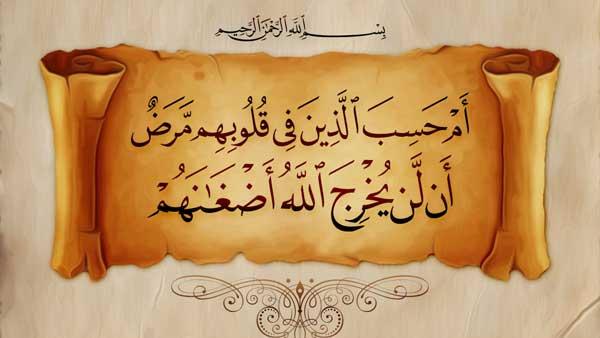 بِسْمِ اللَّهِ الرَّحْمَٰنِ الرَّحِيمِ
أَمْ حَسِبَ ٱلَّذِينَ فِى قُلُوبِهِم مَّرَضٌ
أَن لَّن يُخْرِجَ ٱللَّهُ أَضْغَٰنَهُمْ